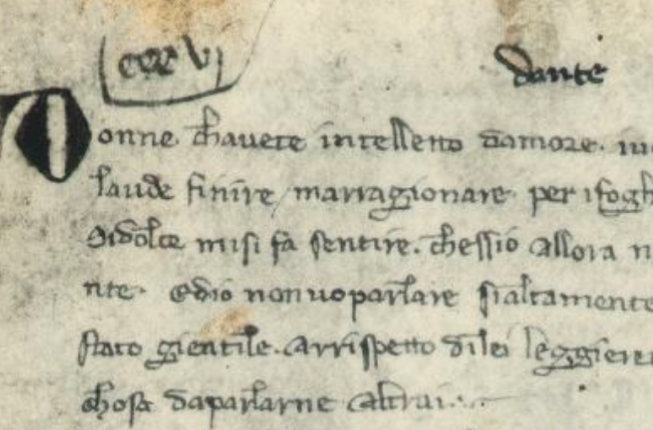 cccv
dante
Donne chavete intelletto damore. iu
laude finire / marragionare per isfogh
sidolce misi fa sentire. chessio allora n
nte. edio non uo parlare sialtamente
stato gientile. arrispetto dilei leggierem
chosa daparlarne altrui.